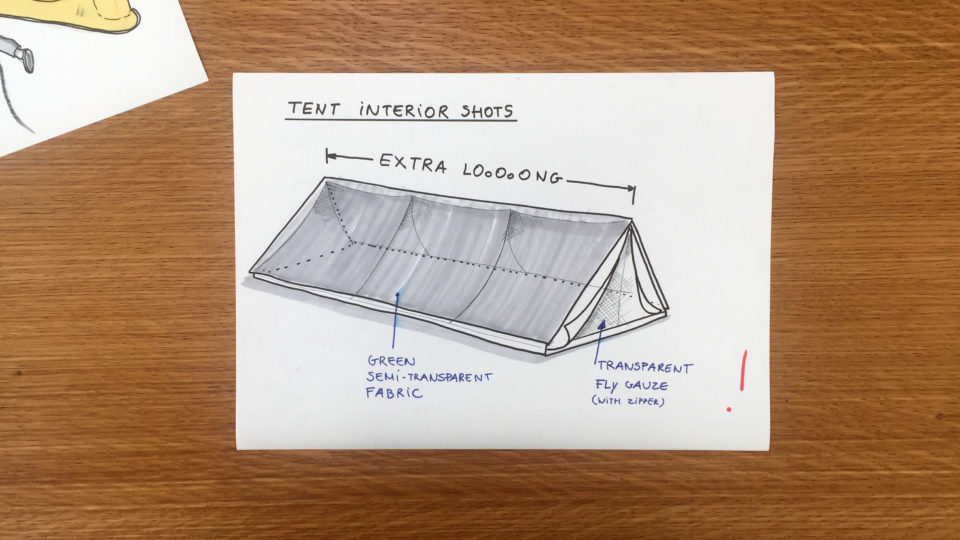 TENT iNTERiOR SHOTS
EXTRA LOoOoONG
GREEN
SEMi-TRANSPARENT
FABRIC
TRANSPARENT
FLy GAUZE
(WiTH ZiPPER)
!